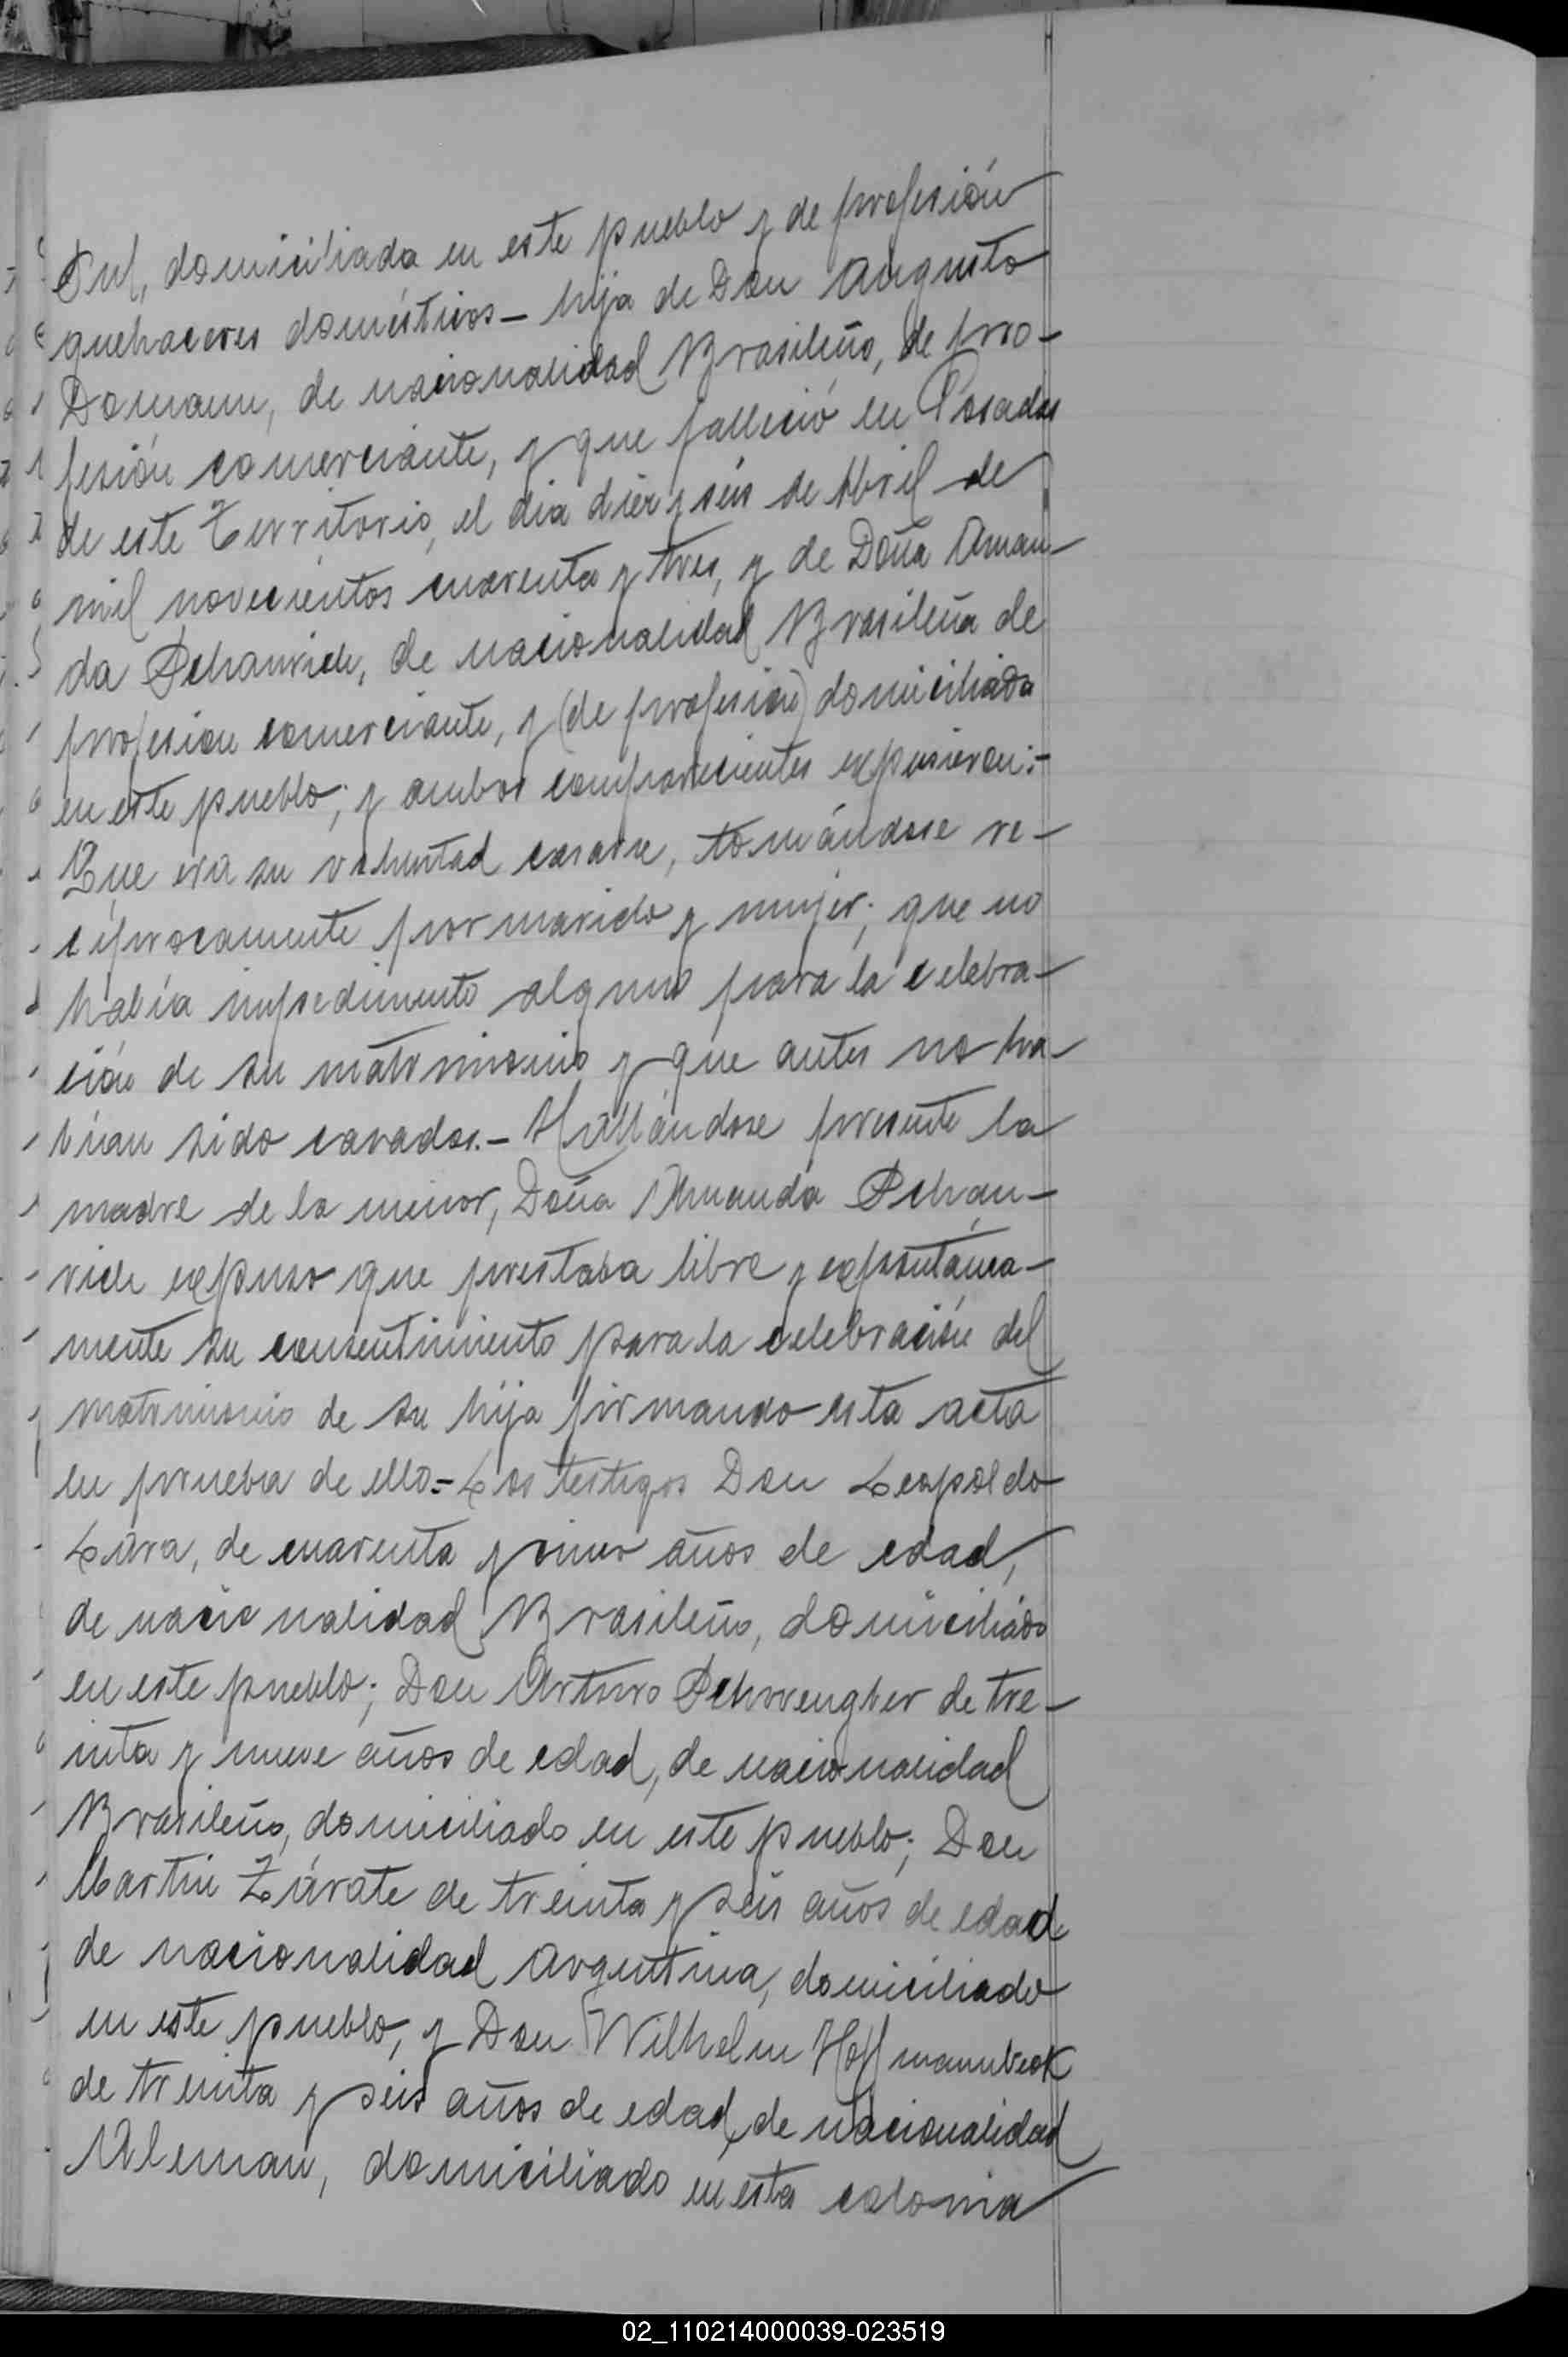 Sul, domiciliada en este pueblo y de profesión
quehaceres domésticos - hija de Don Augusto
Domann, de nacionalidad Brasileño, de pro-
fesión comerciante, y que falleció en Posadas
de este Territorio, el dia diez y seis de Abril de
mil novecientos cuarenta y tres, y de Doña Aman-
da Schanrich, de nacionalidad Brasileña de
profesion comerciante, y (de profesion) domiciliada
en este pueblo; y ambos comparecientes expusieron:-
Que era su voluntad casarse, tomándose re-
ciprocamente por marido y mujer; que no
había impedimento alguno para la celebra-
ción de su matrimonio y que antes no ha-
bían sido casados.- Hallándose presente la
madre de la menor, Doña Amanda Schan-
rich expuso que prestaba libre y expontánea-
mente su consentimiento para la celebración del
matrimonio de su hija firmando esta acta
en prueba de ello.- Los testigos Don Leopoldo
Lara, de cuarenta y cinco años de edad,
de nacionalidad Brasileño, domiciliado
en este pueblo; Don Arturo Schorengher de tre-
inta y nueve años de edad, de nacionalidad
Brasileño, domiciliado en este pueblo; Don
Martin Zárate de treinta y seis años de edad
de nacionalidad Argentina, domiciliado
en este pueblo, y Don Wilhelm Hoffmannbeck
de treinta y seis años de edad, de nacionalidad
Aleman, domiciliado en esta colonia
02_110214000039-023519